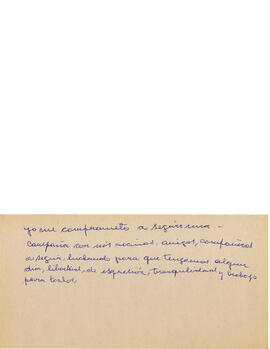 yo me comprometo a seguir una -
campaña con mis vecinos, amigos, compañeros
a seguir luchando para que tengamos algun
dia, libertad, de expresión, tranquilidad y trabajo
para todos,